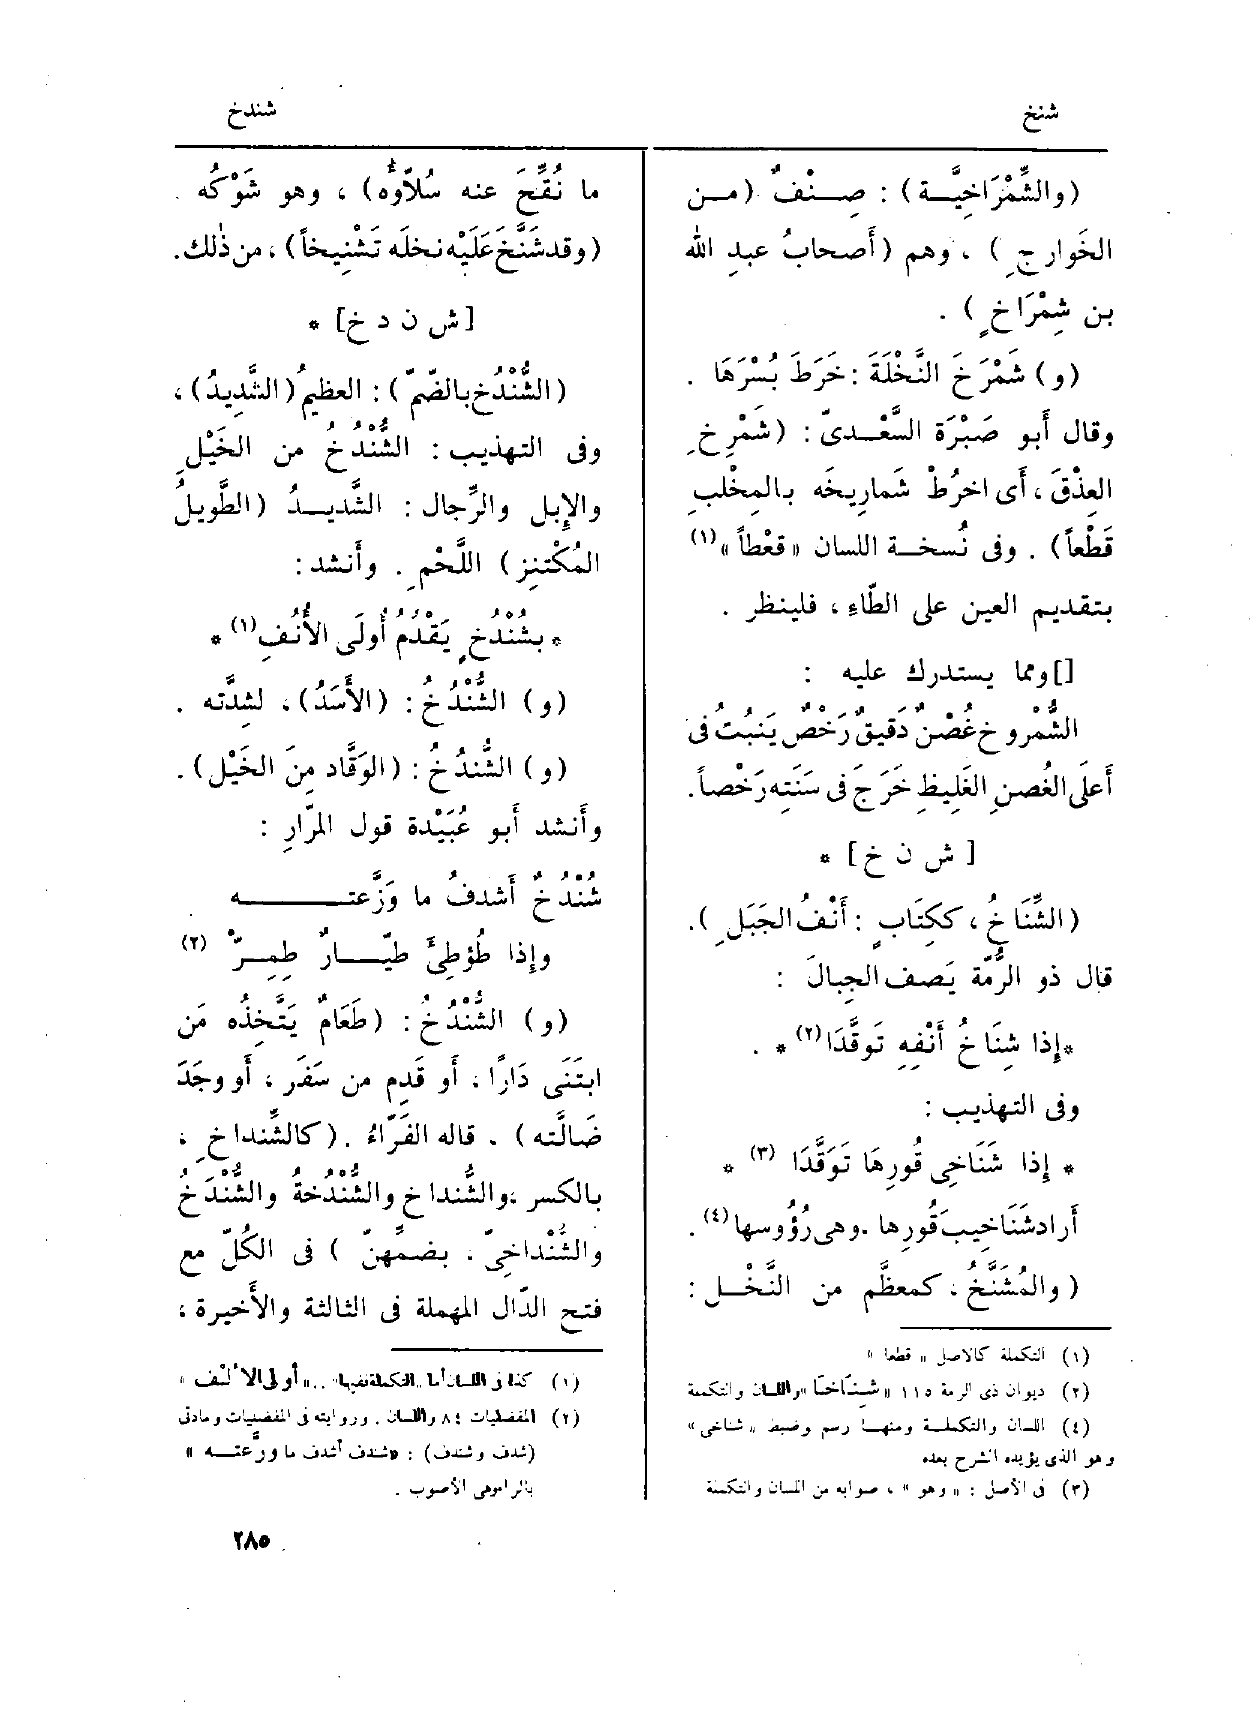 شنخ
شندخ
(والشِّمْرَاخِيَّة) : صِنْفٌ (من
الخَوارجِ) ، وهم (أَصحابُ عبدِ الله
بن شِمْرَاخٍ) .
(و) شَمْرَخَ النَّخْلَةَ : خَرَطَ بُسْرَهَا .
وقال أَبو صَبْرَة السَّعْدىّ : (شَمْرِخِ
العِذْقَ ، أَى اخرُطْ شَماريخَه بالمِخْلبِ
قَطْعاً) . وفى نُسخة اللسان « قعْطاً »(١)
بتقديم العين على الطَّاءِ ، فلينظر .
[]ومما يستدرك عليه :
الشُّمْروخ غُصْنٌ دَقيقٌ رَخْصٌ يَنبُت فى
أَعلَى الغُصنِ الغَلِيظِ خَرَجَ فى سَنَتِه رَخْصاً.
[ ش ن خ ] *
(الشِّنَاخُ ، ككِتَابٍ : أَنْفُ الجَبَلِ ).
قال ذو الرُّمّة يَصف الجِبالَ :
*إِذا شِنَاخُ أَنْفِهِ تَوقَّدَا(٢)* .
وفى التهذيب :
* إِذا شَنَاخِى قُورِهَا تَوَقَّدَا (٣) *
أَراد شَنَاخِيبَ قُورِها .وهى رُؤُوسها(٤).
( والمُشَنَّخُ ، كمعظَّم من النَّخْل :
(١) التكملة كالأصل « قطعا »
(٢) ديوان ذى الرمة ١١٥ «شِنَاخَا» واللسان والتكملة
(٤) اللسان والتكملة ومنها رسم وضبط « شناخى »
وهو الذى يؤيده الشرح بعده
(٣) فى الأصل : « وهو » ، صوابه من اللسان والتكملة
ما نُقِّحَ عنه سُلاَّؤُه) ، وهو شَوْكُه .
(وقد شَنَّخَ عَلَيْه نخلَه تَشْنِيخاً) ، من ذٰلك.
[ش ن د خ] *
(الشُّنْدُخ بالضّمّ) : العظيمُ (الشَّديدُ) ،
وفى التهذيب : الشُّنْدُخُ من الخَيْلِ
والإِبل والرِّجال : الشَّديدُ (الطَّويلُ
المُكْتنِز) اللَّحْمِ . وأَنشد :
* بشُنْدُخٍ يَقْدُمُ أُولَى الأُنُفِ(١) *
(و) الشُّنْدُخُ : (الأَسَدُ) ، لشدَّته .
(و) الشُّنْدُخُ : (الوَقَّاد مِنَ الخَيْل) .
وأَنشد أَبو عُبَيْدة قول المَرّارِ :
شُنْدُخٌ أَشدفُ ما وَزَّعتَه
وإِذا طُؤطِئَ طَيَّارٌ طِمِرّْ (٢)
(و) الشُّنْدُخُ : (طَعَامٌ يَتَّخِذُه مَن
ابتَنَى دَارًا ، أَو قَدِم من سَفَر ، أَو وجَدَ
ضَالَّته) . قاله الفَرّاءُ .(كالشِّنداخِ ،
بالكسر ،والشُّنداخ والشُّنْدُخة والشُّنْدَخُ
والشُّنْداخِىّ ، بضمِّهنّ ) فى الكُلّ مع
فتح الدّال المهملة فى الثالثة والأَخيرة ،
(١) كذا فى اللسان أما «التكملة ففيها» .. « أُولى الأُلُف »
(٢) المفضليات ٨٤ واللسان . وروايته فى المفضليات ومادتى
(شدف وشندف) : «شندف أشدف ما ورَّعته »
بالراء وهى الأصوب .
٢٨٥